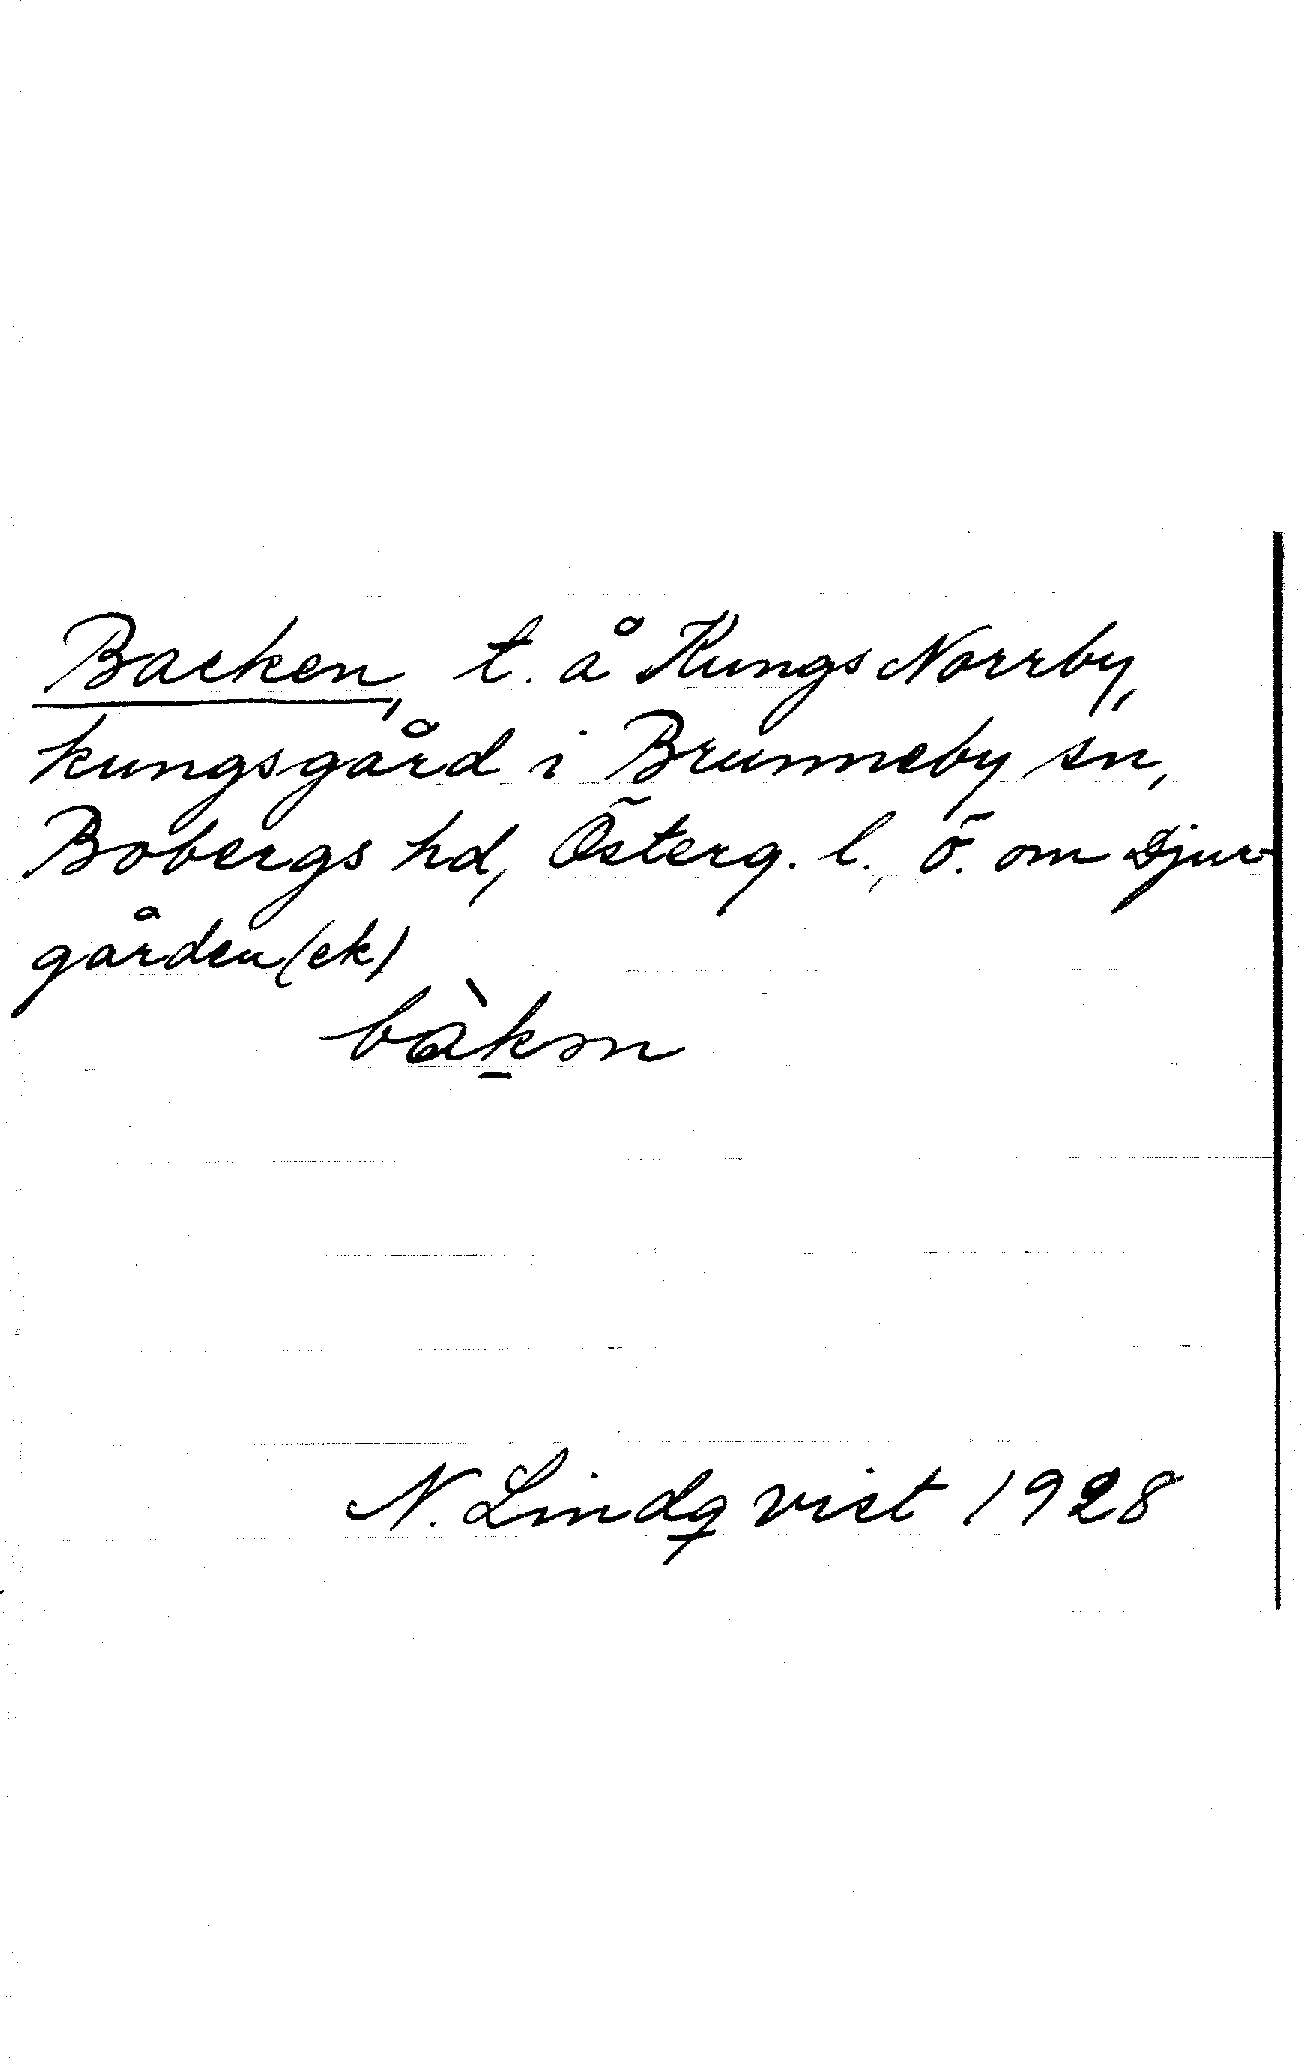 Backen, t. å Kungs Norrby,
kungsgård i Brunneby sn,
Bobergs hd, Österg. l., ö. om Djur-
gården (ek)
bàkən
N. Lindqvist 1928